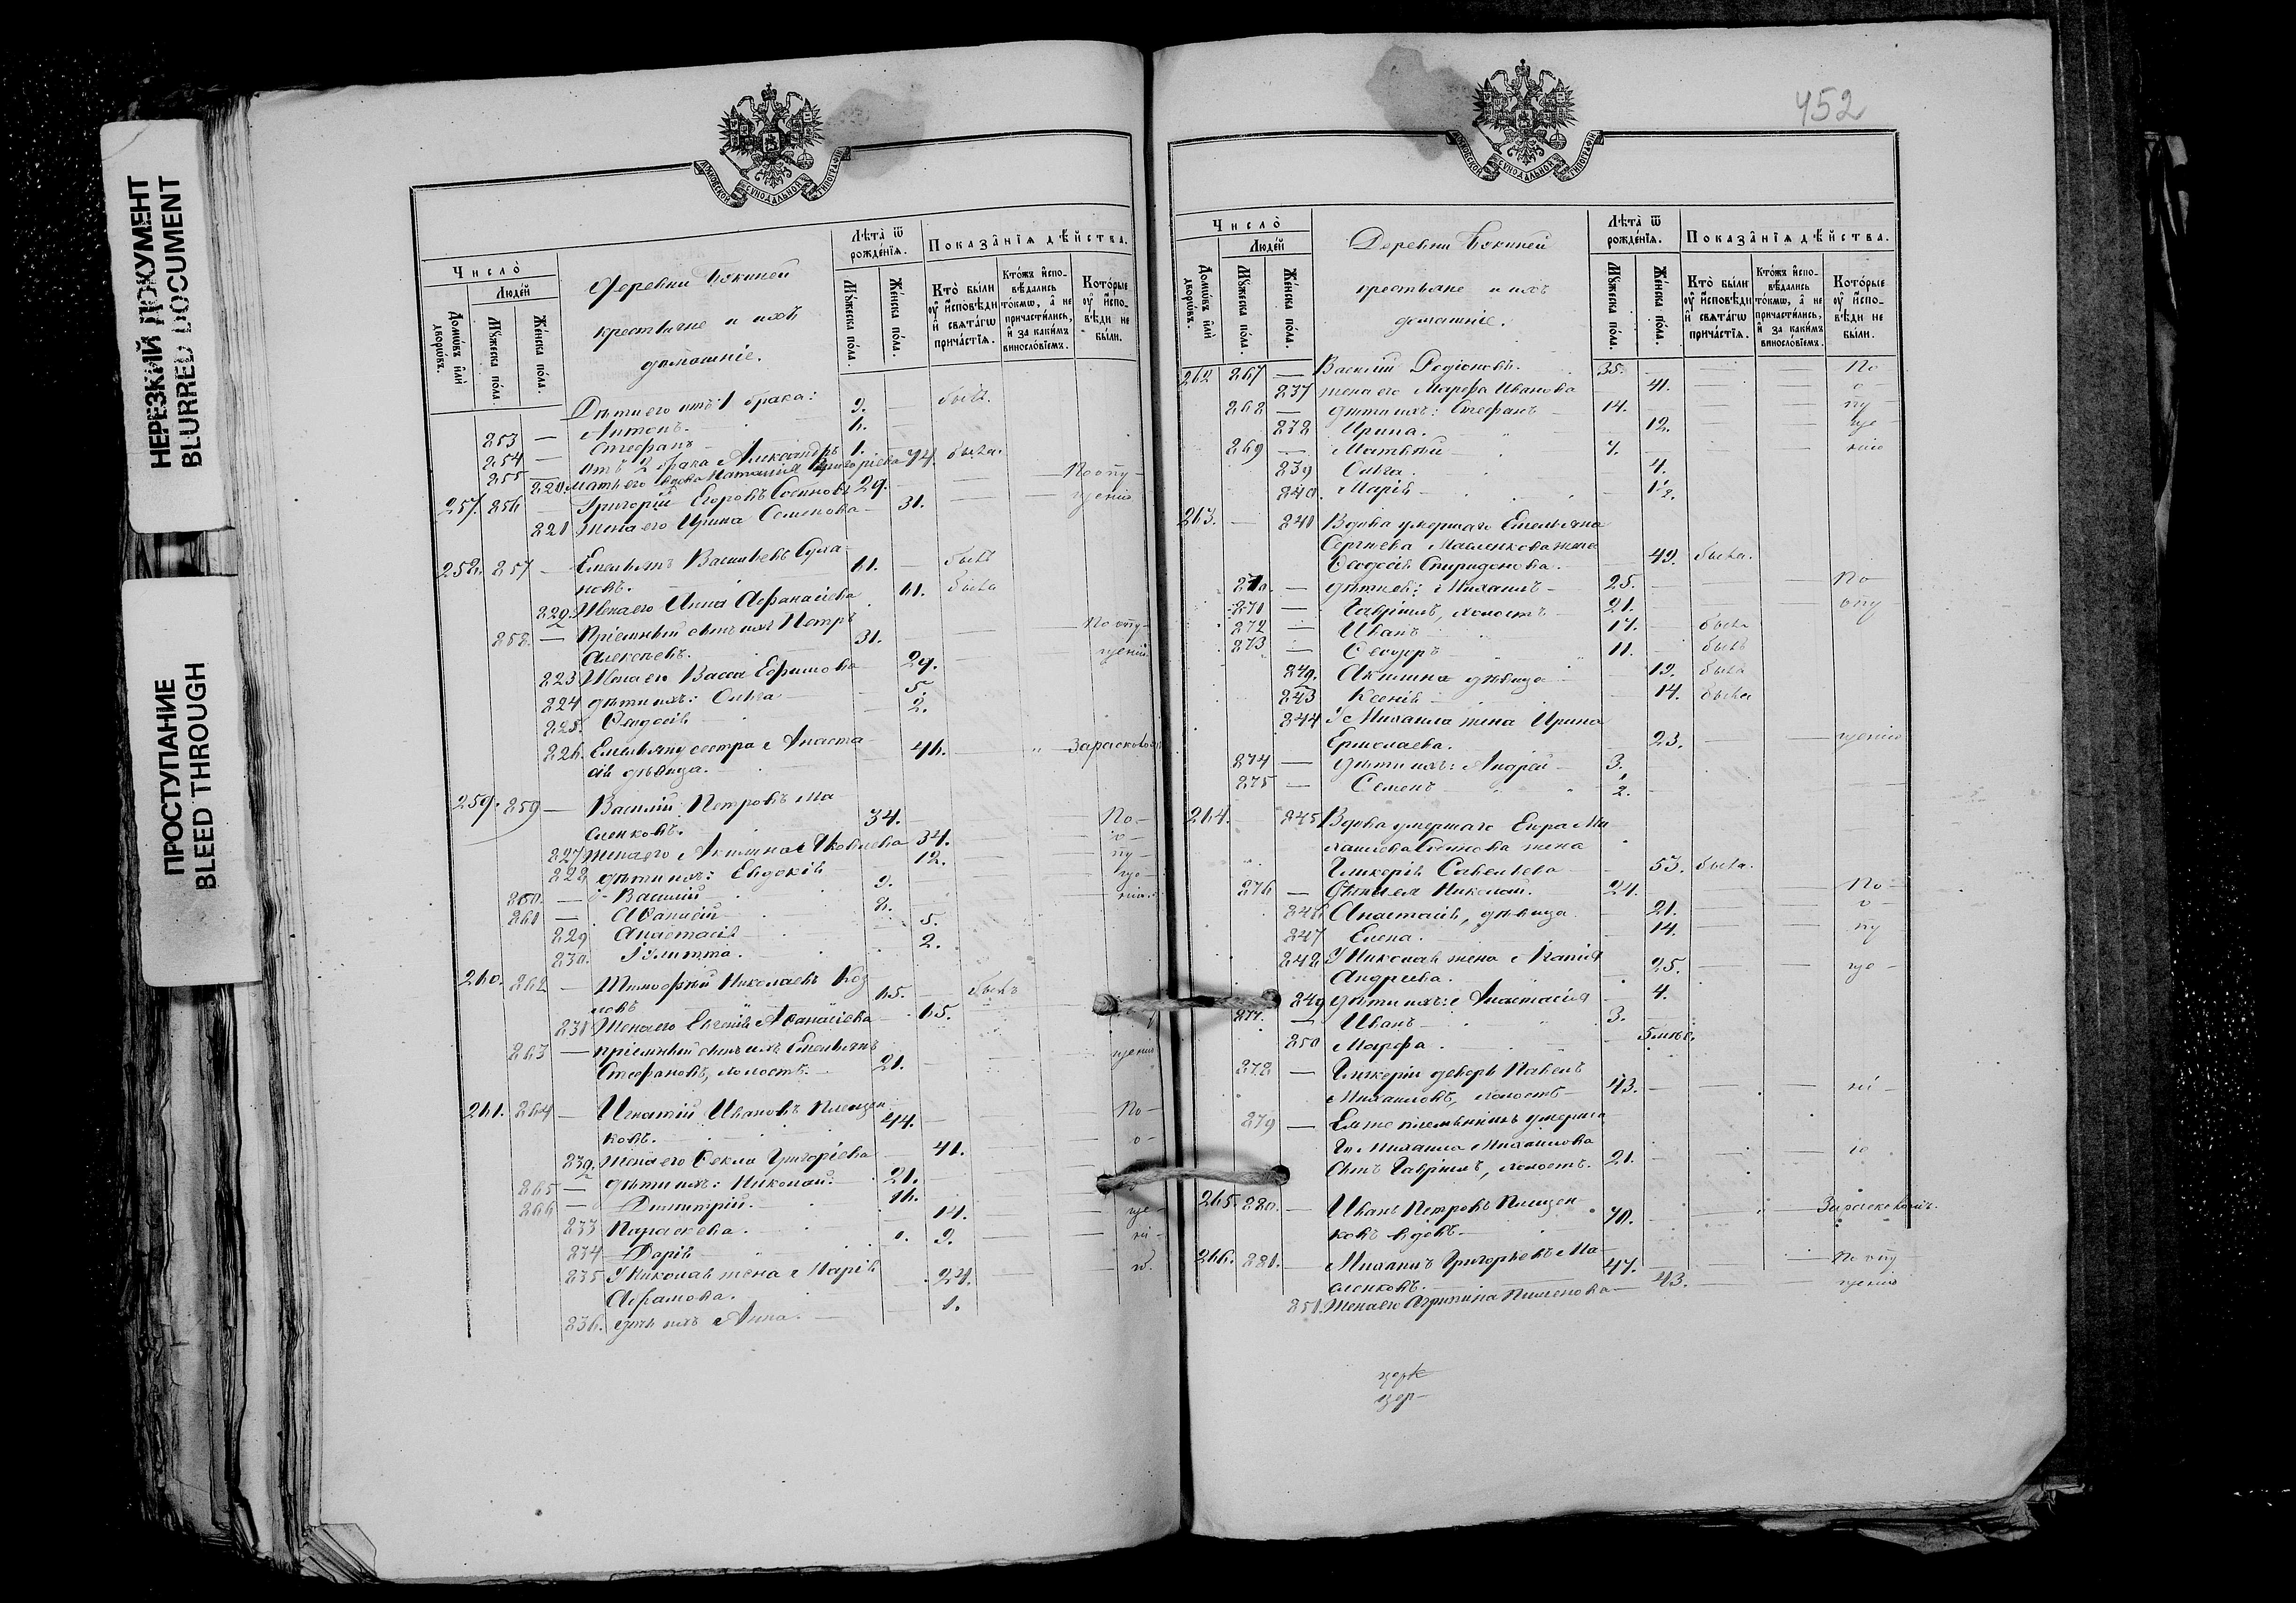 НЕРЕЗКИЙ ДОКУМЕНТ
BLURRED DOCUMENT
ПРОСТУПАНИЕ
BLEED THROUGH
МОСКОВСКОЙ СѴНОДАЛЬНОЙ ТИПОГРАФІИ
Число̀
Людей
Домѡвъ илѝ дворѡвъ.
Мꙋжеска пола.
Женска пола.
Деревни
крестьяне и ихъ
домашніе.
Лѣта̀ ѿ рожденїѧ.
Мꙋжеска пола.
Женска пола.
Показанїѧ дѣйства.
Кто̀ были оу҆ исповѣди и свѧтагѡ причастїѧ.
Ктожъ исповѣдались токмѡ, а не причастились, и за какимъ винословїемъ.
Которые оу҆ исповѣди не были.
Дѣти его отъ 1 брака:
853 — Антонъ. 9. — былъ.
854 — Стефанъ — 6. —
855 — отъ 2 брака Александръ 1.
820. мать его вдова Наталія Григоріева 74. была.
257. 856 — Григорій Егоровъ 29. — По опу-
821 жена его Ирина Семенова — 31. — щенію
258. 857 — Емельянъ Васильевъ
новъ. 61. былъ
822. Жена его Анна Афанасіева 61. была
858. — Пріемный сынъ ихъ Петръ
Алексѣевъ. 31. По опу-
823. Жена его Васса Ефимова 29. щенію
824 дѣти ихъ: Ольга — 5.
825. Ѳеодосія — 2.
826. Емельяну сестра Анаста-
сія дѣвица. 46. — За расколомъ
259. 859 — Василій Петровъ Ма-
сленковъ. 34. По-
827 жена его Акилина Яковлева 34. о-
828 дѣти ихъ: Евдокія 12. пу-
860. — Василій — 9. ще-
861 — Аѳанасій 8. нію.
829 Анастасія 5.
830. Іулитта. 2.
260. 862 — Тимоѳей Николаевъ Коз-
ловъ 65. — былъ
831 Жена его Евгенія Аѳанасіева 65.
863 — пріемный сынъ ихъ Емельянъ
Стефановъ, холостъ. 21. щенію
261. 864 — Игнатій Ивановъ Плещен-
ковъ. 44. По-
832. Жена его Ѳекла Григоріева 41. о-
865 — дѣти ихъ: Николай. 21.
866 — Димитрій. 16.
833 Параскева. 14. ще-
834 Дарія 9. ні-
835 У Николая жена Марія
Абрамова. 24. ю.
836. дочь ихъ Анна. 1.
452
МОСКОВСКОЙ СѴНОДАЛЬНОЙ ТИПОГРАФІИ
Число̀
Людей
Домѡвъ илѝ дворѡвъ.
Мꙋжеска пола.
Женска пола.
Деревни
крестьяне и ихъ
домашніе.
Лѣта̀ ѿ рожденїѧ.
Мꙋжеска пола.
Женска пола.
Показанїѧ дѣйства.
Кто̀ были оу҆ исповѣди и свѧтагѡ причастїѧ.
Ктожъ исповѣдались токмѡ, а не причастились, и за какимъ винословїемъ.
Которые оу҆ исповѣди не были.
262 867 — Василій Родіоновъ. 35. По
837 жена его Марфа Иванова 41. о-
868 — дѣти ихъ: Стефанъ 14. пу
838 Ирина. 12. ще
869 — Матѳей 7. нію
839 Ольга. 4.
840. Марія — 1/2.
263. — 841 Вдова умершаго Емельяна
Сергѣева Масленкова жена
Ѳеодосія Спиридонова. 49. была.
870. — дѣти ея: Михаилъ — 25. По
871 — Гавріилъ, холостъ 21. опу
872 — Иванъ 17. былъ
873 — Ѳеодоръ 11. былъ
842. Акилина дѣвица 19. была
843 Ксенія 14. была
844 У Михаила жена Ирина
Ермолаева. 23. щенію
874 — дѣти ихъ: Андрей — 3.
875 — Семенъ 1/2.
264. 845 Вдова умершаго Егора Ми-
хаилова жена
Гликерія Савельева 53. была.
876 — Дѣти ея Николай. 24. По-
846 Анастасія, дѣвица 21. о-
847 Елена. 14. пу
848 У Николая жена Агапія
Андреева. 25. ще-
849 дѣти ихъ: Анастасія 4.
877. — Иванъ 3.
850 Марфа. 5 мѣс.
878 — Гликеріи деверь Павелъ
Михаиловъ, холостъ 43. ні-
879 — Ея же племянникъ умерша-
го Михаила Михаилова
сынъ Гавріилъ, холостъ. 21. ю
265. 880. — Иванъ Петровъ Плещен-
ковъ вдовъ 70. За расколомъ.
266. 881. — Михаилъ Григорьевъ Ма-
сленковъ. 47. По опу
851. Жена его Агрипина Пименова 43. щенію
церк
цер-